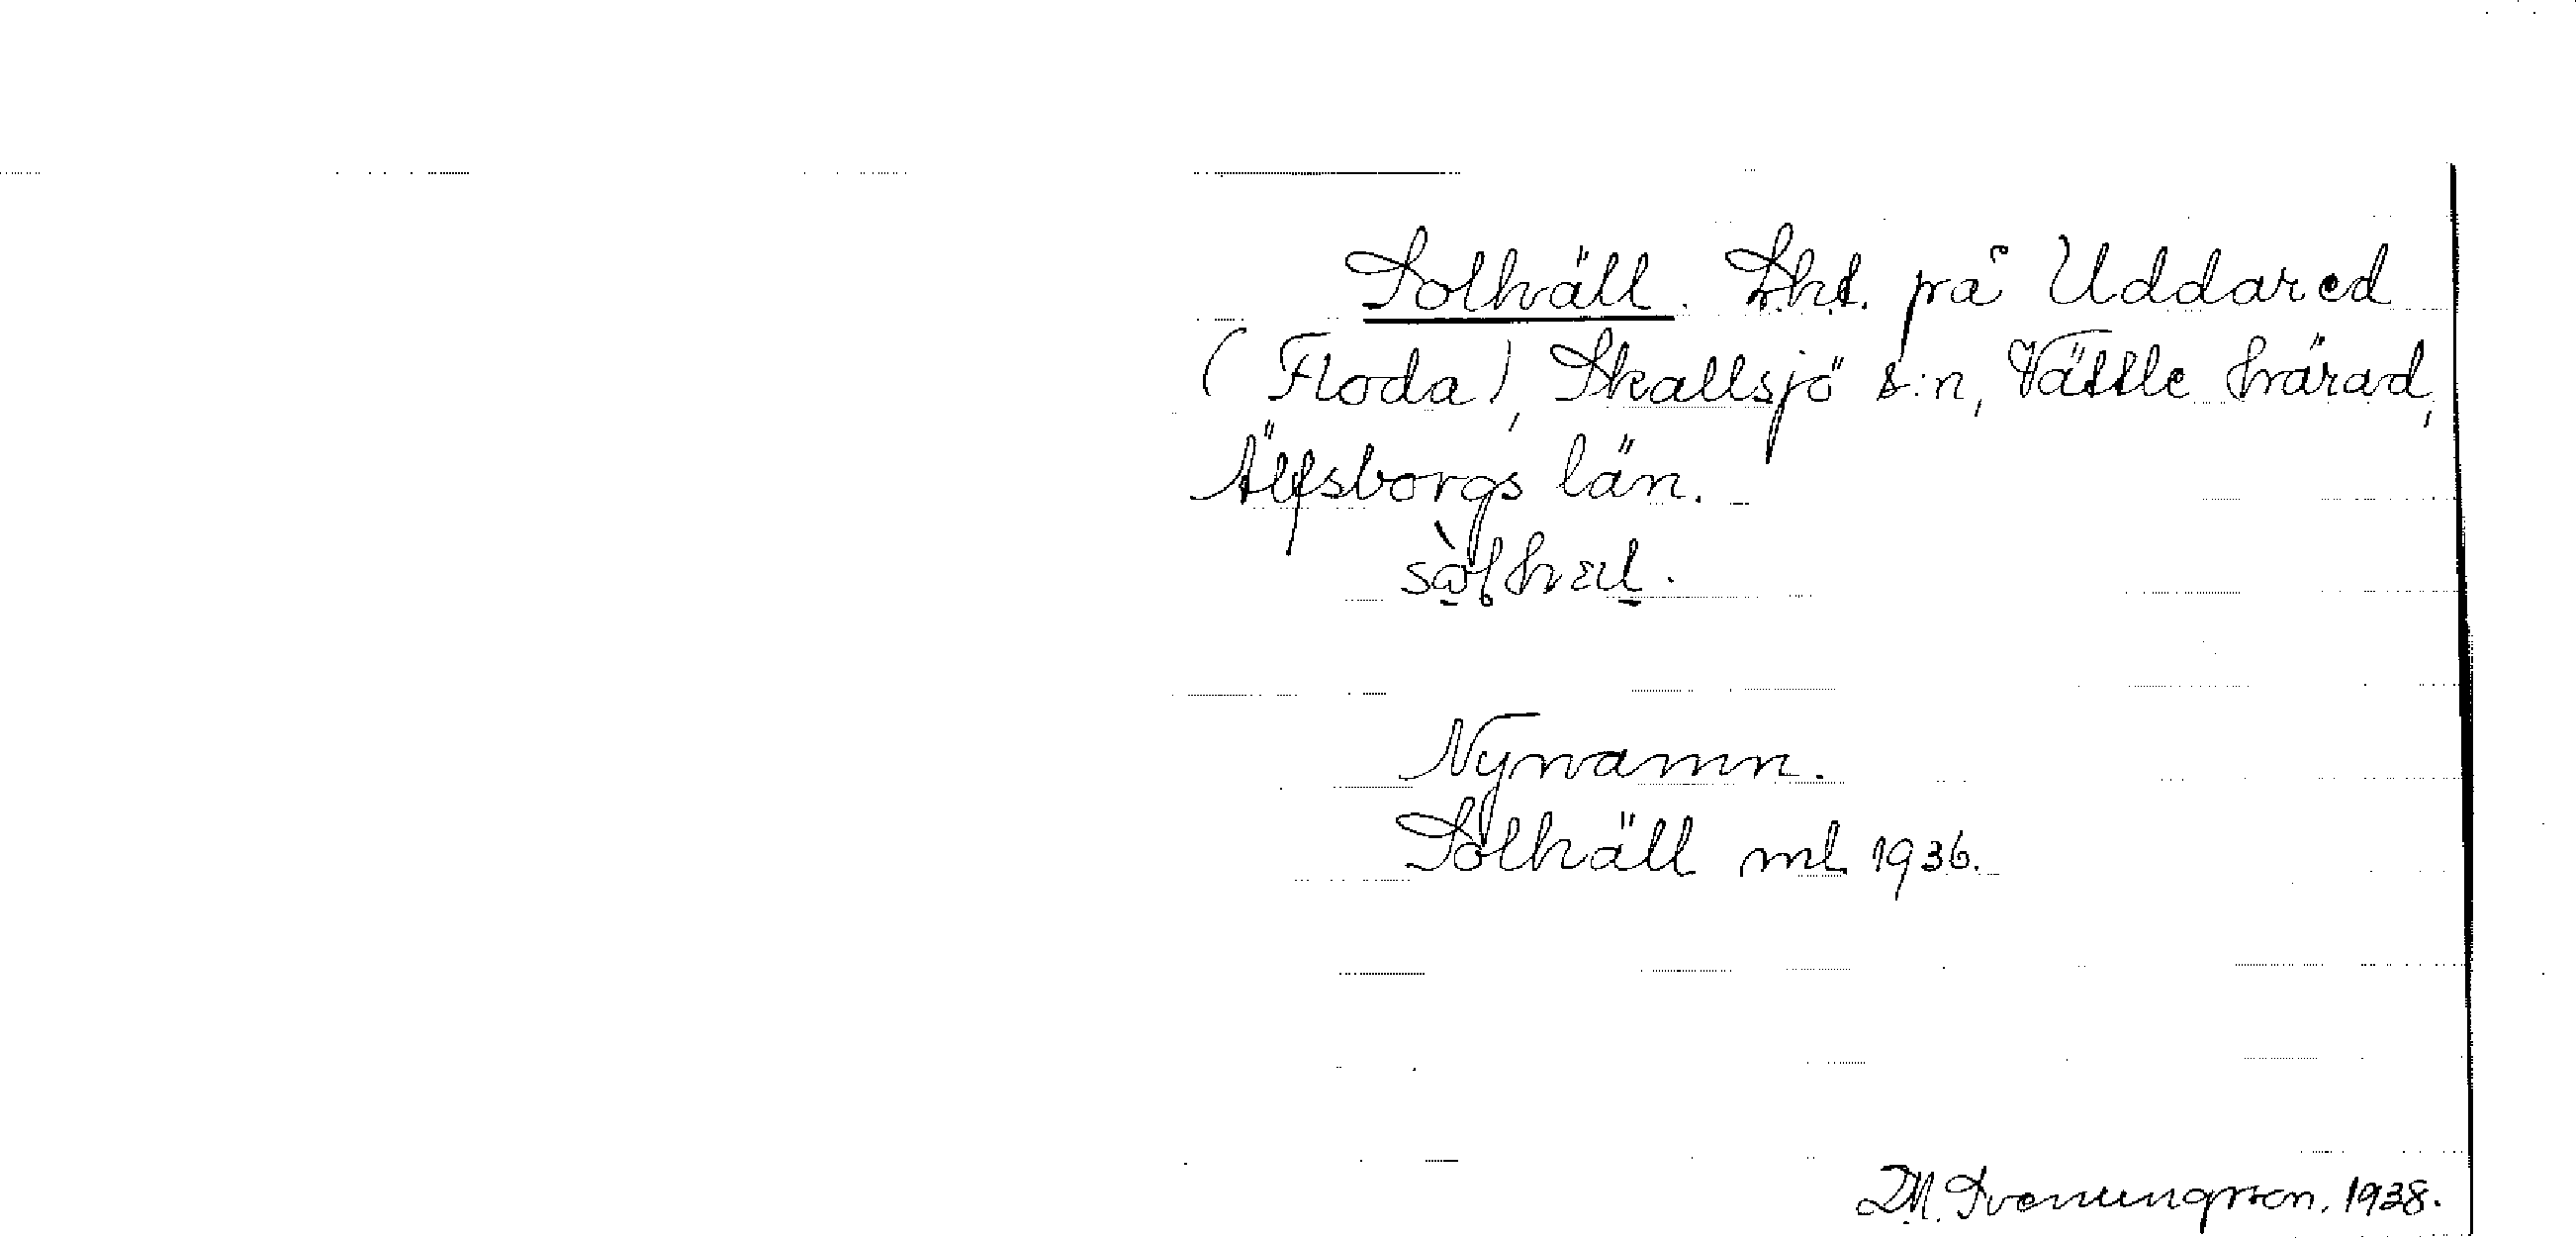 Solhäll. Lht. på Uddared
(Floda), Skallsjö s:n, Vättle härad,
Älfsborgs län.
Nynamn.
Solhäll ml. 1936.
D.M. Svenungsson. 1938.